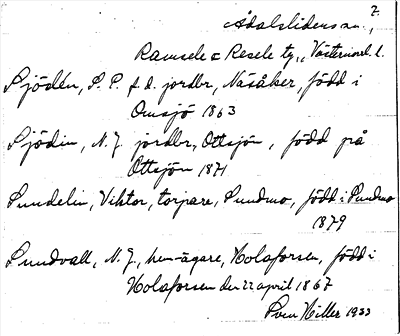 2.
Ådalslidens sn.,
Ramsele o Resele tg., Västernorrl. l.
Sjödén, S. P. f. d. jordbr, Näsåker, född i
Omsjö 1863
Sjödin, N. J. jordbr, Ottsjön, född på
Ottsjön 1871
Sundelin, Viktor, torpare, Sundmo, född i Sundmo
1879
Sundvall, N. J., hem.ägare, Holaforsen, född i
Holaforsen den 22 april 1867
Sven Hiller 1933